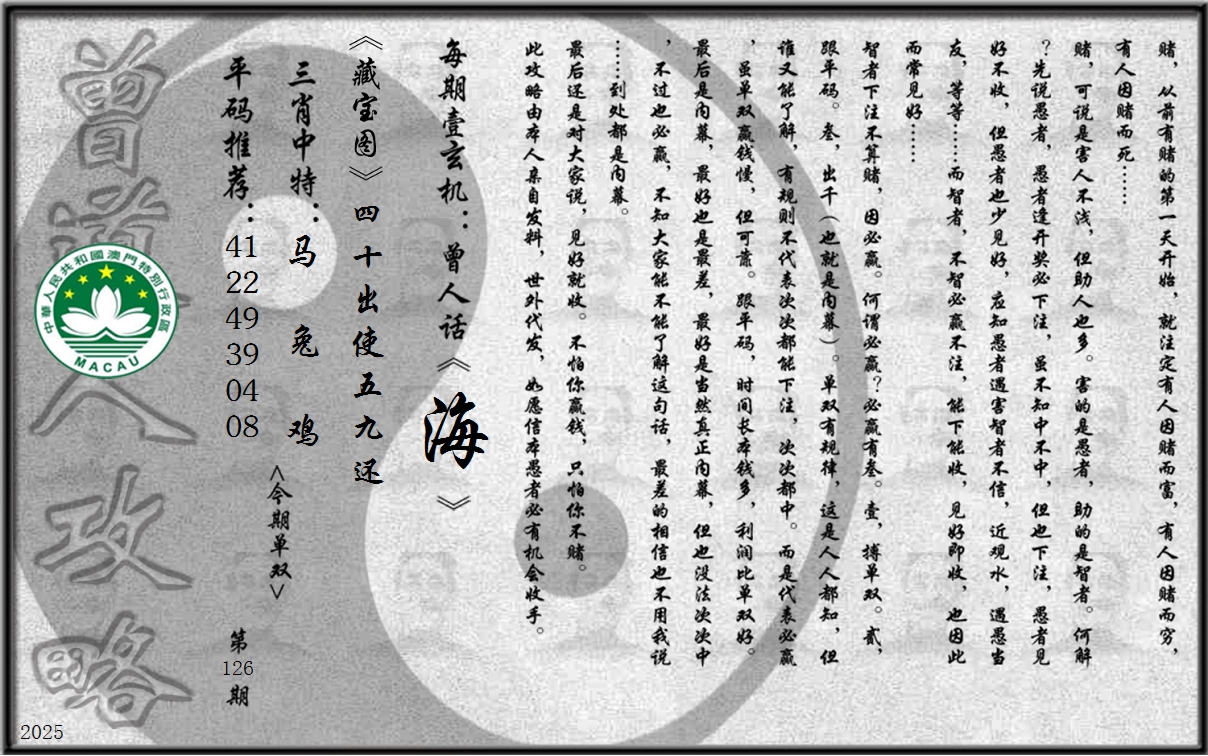 赌，从前有赌的第一天开始，就注定有人因赌而富，有人因赌而穷，
有人因赌而死……
赌，可说是害人不浅，但助人也多。害的是愚者，助的是智者。何解
？先说愚者，愚者逢开奖必下注，虽不知中不中，但也下注，愚者见
好不收，但愚者也少见好，应知愚者遇害智者不信，近观水，遇愚当
友，等等……而智者，不智必赢不注，能下能收，见好即收，也因此
而常见好……
智者下注不算赌，因必赢。何谓必赢？必赢有叁。壹，搏单双。贰，
跟平码。叁，出千（也就是内幕）。单双有规律，这是人人都知，但
谁又能了解，有规则不代表次次都能下注，次次都中。而是代表必赢
，虽单双赢钱慢，但可靠。跟平码，时间长本钱多，利润比单双好。
最后是内幕，最好也是最差，最好是当然真正内幕，但也没法次次中
，不过也必赢，不知大家能不能了解这句话，最差的相信也不用我说
……到处都是内幕。
最后还是对大家说，见好就收。不怕你赢钱，只怕你不赌。
此攻略由本人亲自发料，世外代发，如愿信本愚者必有机会收手。
每期壹玄机：曾人话《海》
《藏宝图》四十出使五九还
三肖中特：马 兔 鸡
<今期单双>
平码推荐：
41
22
49
39
04
08
第
126
期
曾道人攻略
中華人民共和國澳門特別行政區
MACAU
2025